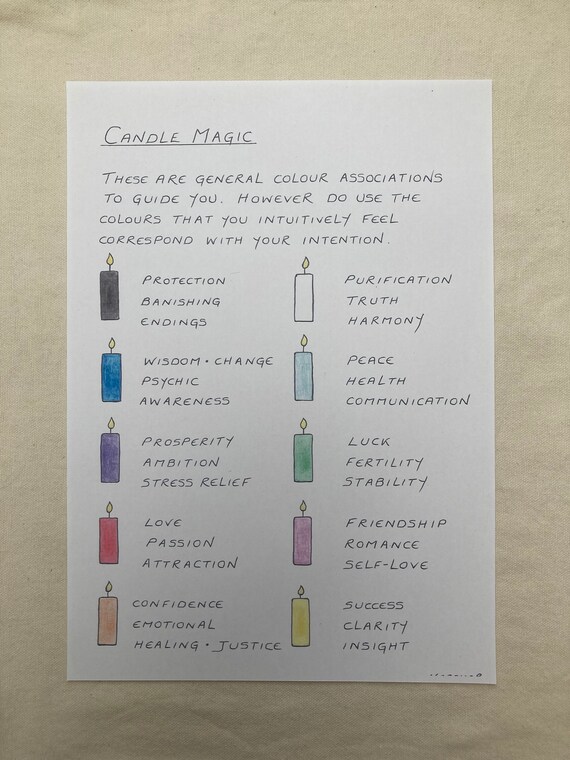 CANDLE MAGIC
THESE ARE GENERAL COLOUR ASSOCIATIONS
TO GUIDE YOU. HOWEVER DO USE THE
COLOURS THAT YOU INTUITIVELY FEEL
CORRESPOND WITH YOUR INTENTION.
PROTECTION
BANISHING
ENDINGS
PURIFICATION
TRUTH
HARMONY
WISDOM • CHANGE
PSYCHIC
AWARENESS
PEACE
HEALTH
COMMUNICATION
PROSPERITY
AMBITION
STRESS RELIEF
LUCK
FERTILITY
STABILITY
LOVE
PASSION
ATTRACTION
FRIENDSHIP
ROMANCE
SELF-LOVE
CONFIDENCE
EMOTIONAL
HEALING • JUSTICE
SUCCESS
CLARITY
INSIGHT